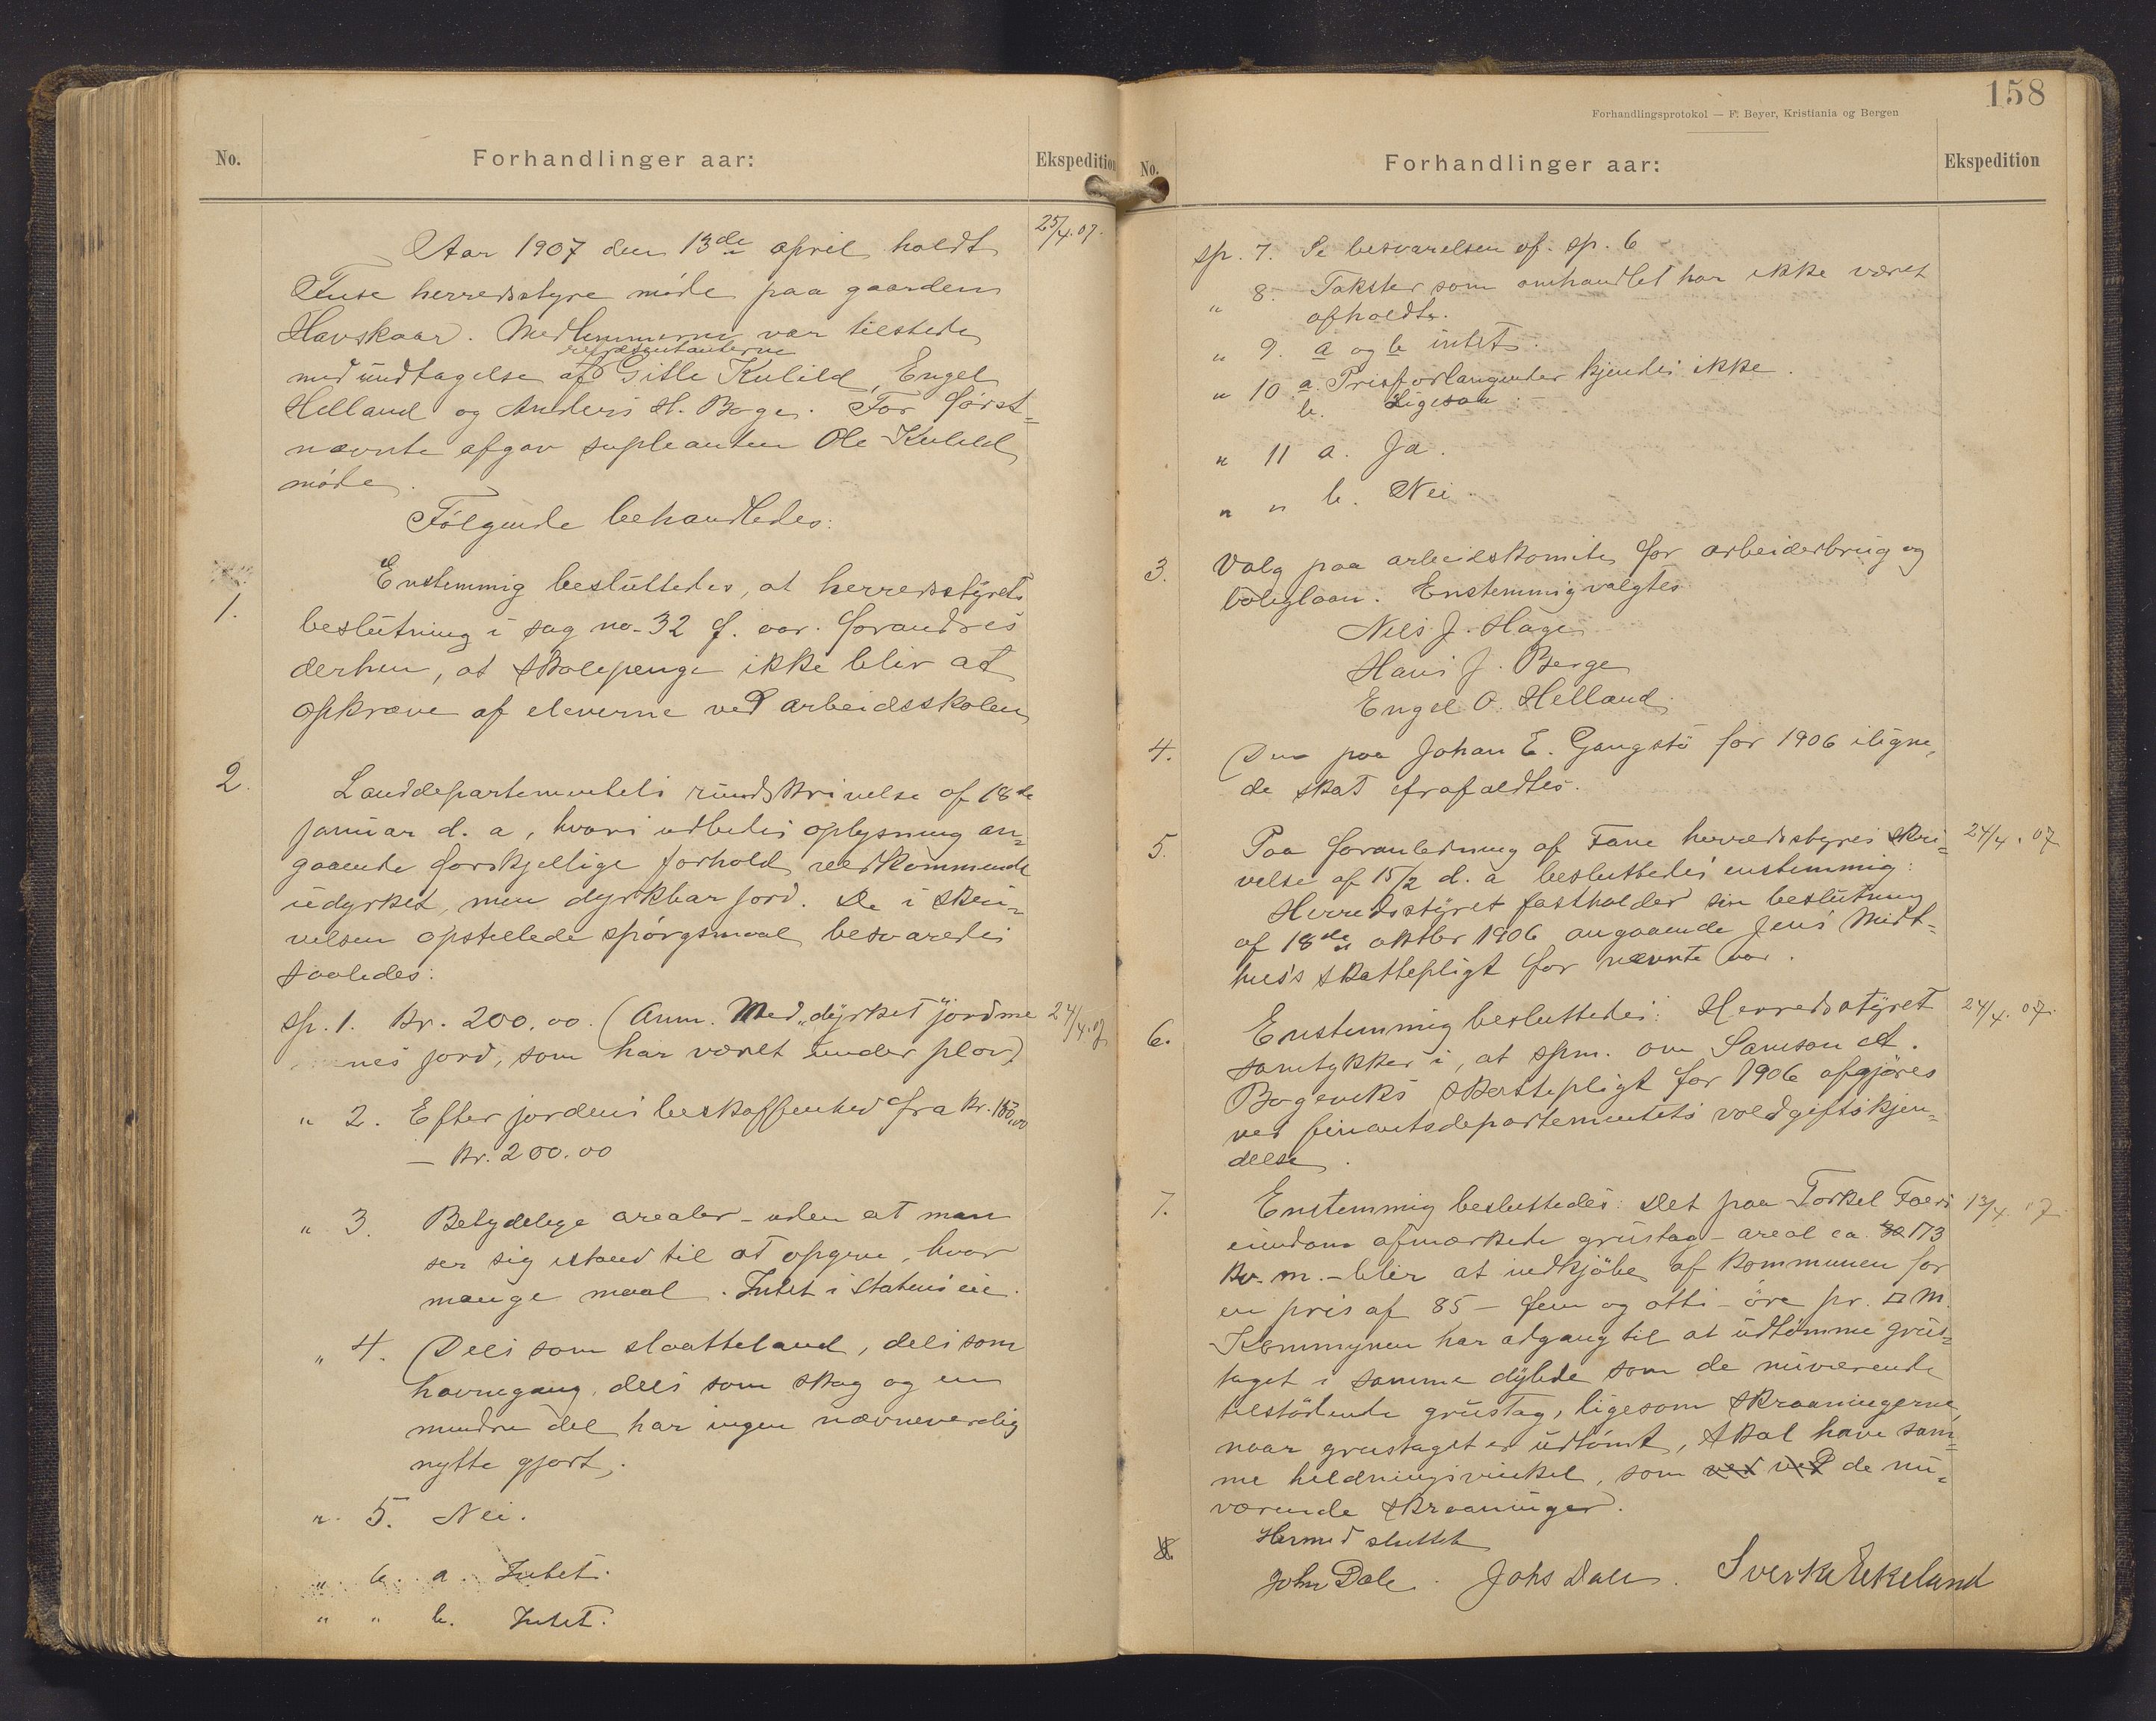 No.
Forhandlinger aar:
Ekspedition
Aar 1907 den 13de april holdt
25/4.07.
Fuse herredsstyre møde paa gaarden
Havskaar. Medlemmerne var tilstede
repræsentanterne
med undtagelse af Gitle Kulild, Engel
Helland og Anders H. Boge. For først-
nævnte afgav supleanten Ole Kulild
møde.
Følgende behandledes:
1.
Enstemmig besluttedes, at herredsstyrets
beslutning i sag no. 32 f. aar. forandres
derhen, at skolepenge ikke blir at
opkræve af eleverne ved arbeidsskolen
2.
Landdepartementets rundskrivelse af 18de
januar d. a, hvori udbedes oplysning an-
gaaende forskjellige forhold vedkommende
udyrket, men dyrkbar jord. De i skri-
velsen opstillede spørgsmaal besvaredes
saaledes:
sp. 1. Kr. 200.00. (Anm. Med "dyrket" jord me
24/4.07
nes jord, som har været under plov)
" 2. Efter jordens beskaffenhed fra kr. 100,00
– kr. 200.00
" 3. Betydelige arealer – uden at man
ser sig istand til at opgive, hvor
mange maal. Intet i statens eie.
" 4. Dels som slaatteland, dels som
havnegang, dels som skog og en
mindre del har ingen nævneverdig
nytte gjort.
" 5. Nei.
" 6. a. Intet.
" " b. Intet.
158
Forhandlingsprotokol — F. Beyer, Kristiania og Bergen
No.
Forhandlinger aar:
Ekspedition
sp. 7. Se besvarelsen af sp. 6
" 8. Takster som omhandlet har ikke været
afholdt.
" 9. a og b intet.
" 10 a. Prisforlangender kjendes ikke.
b. Ligesaa.
" 11 a. Ja.
" " b. Nei.
3. Valg paa arbeidskomite for arbeiderbrug og
boliglaan. Enstemmig valgtes
Nils J. Hage
Hans J. Berge
Engel O. Helland.
4. Den paa Johan E. Gangstø for 1906 iligne,
de skat frafaldtes.
5. Paa foranledning af Fane herredsstyres skri-
24/4.07
velse af 15/2 d. a besluttedes enstemmig:
Herredsstyret fastholder sin beslutning
af 18de oktbr 1906 angaaende Jens Midt-
hus's skattepligt for nævnte aar.
6. Enstemmig besluttedes: Herredsstyret
24/4.07.
samtykker i, at spm. om Samson
Bogeviks skattepligt for 1906 afgjøres
ved finantsdepartementets voldgiftskjen-
delse.
7. Enstemmig besluttedes: Det paa Torkel
13/4.07
eiendom afmærkede grustag – areal ca. 173
kv. m. – blir at indkjøbe af kommunen for
en pris af 85 – fem og otti – øre pr. □ m.
Kommunen har adgang til at udtømme grus-
taget i samme dybde som de nuværende
tilstødende grustag, ligesom skraaningerne,
naar grustaget er udtømt, skal have sam-
me heldningsvinkel, som ved ved de nu-
værende skraaninger.
Hermed sluttet
John Dale. Johs Dale. Sverke Eikeland